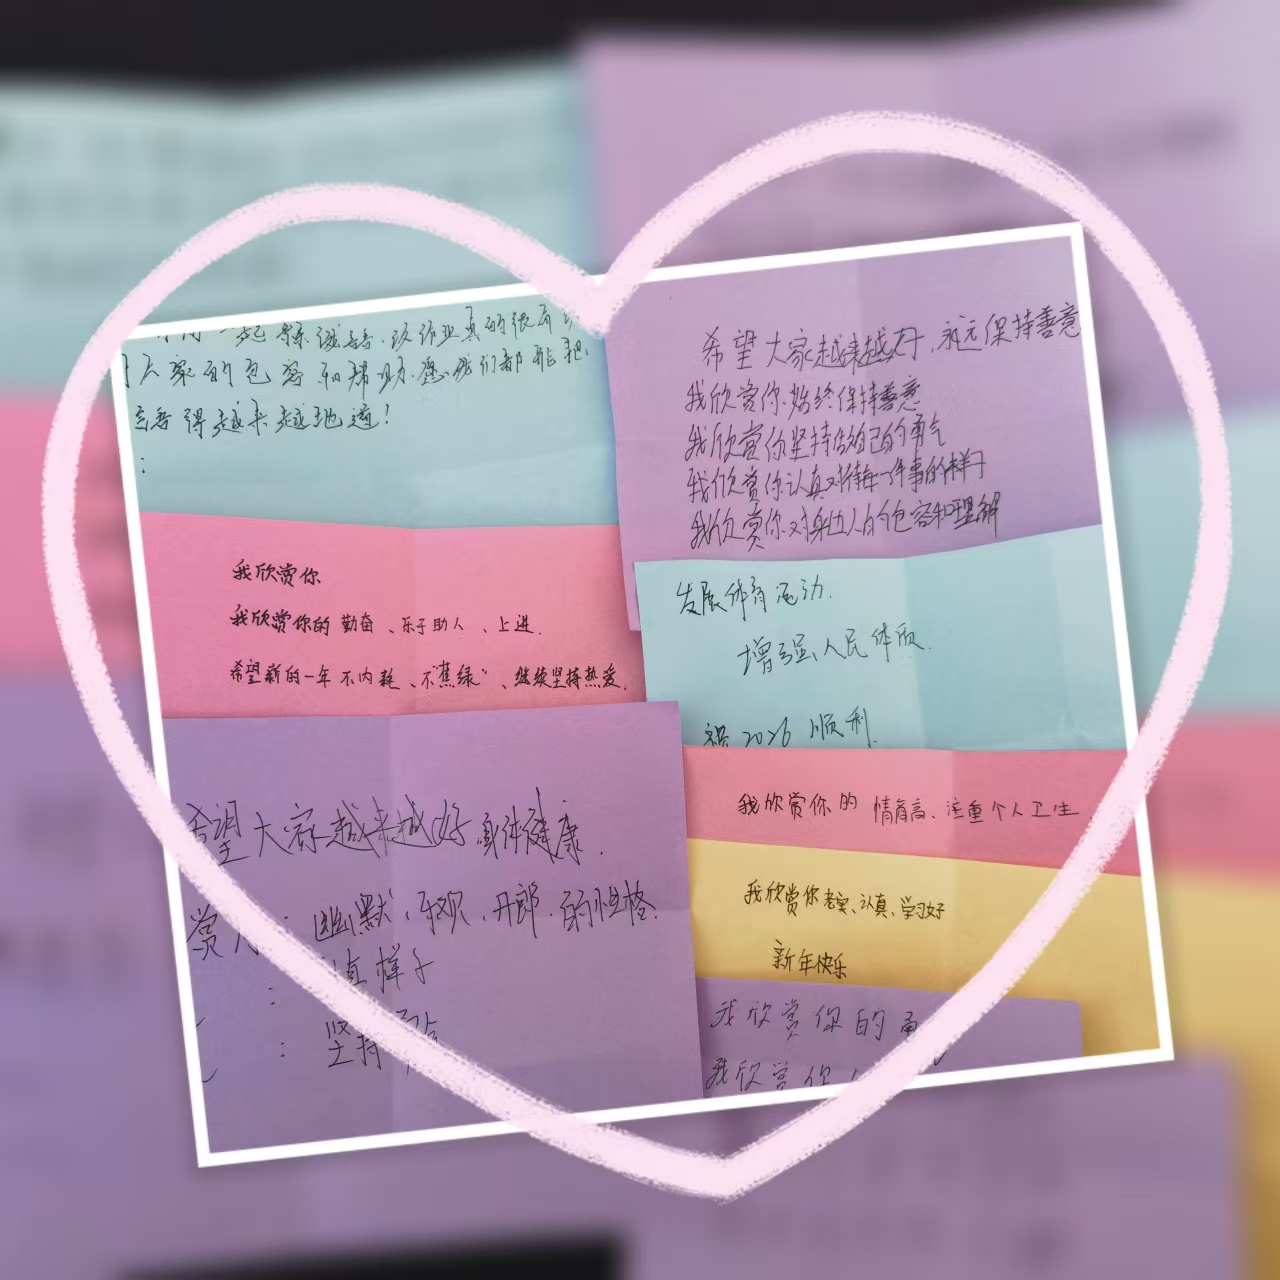 一起练继续，这作业真的很有
大家的包容和帮助，愿我们都能把
得越来越地道！
希望大家越来越好，永远保持善意
我欣赏你始终保持善意
我欣赏你坚持做自己的勇气
我欣赏你认真对待每一件事的样子
我欣赏你对身边人的包容和理解
我欣赏你
我欣赏你的勤奋、乐于助人、上进.
希望新的一年不内耗、不“蕉绿”、继续坚持热爱.
发展体育运动.
增强人民体质.
祝2026顺利.
希望大家越来越好 身体健康.
赏 : 幽默、乐观、开朗.的性格.
真样子
: 坚持
我欣赏你的 情商高、注重个人卫生.
我欣赏你老实、认真、学习好
新年快乐
我欣赏你的勇
我欣赏你